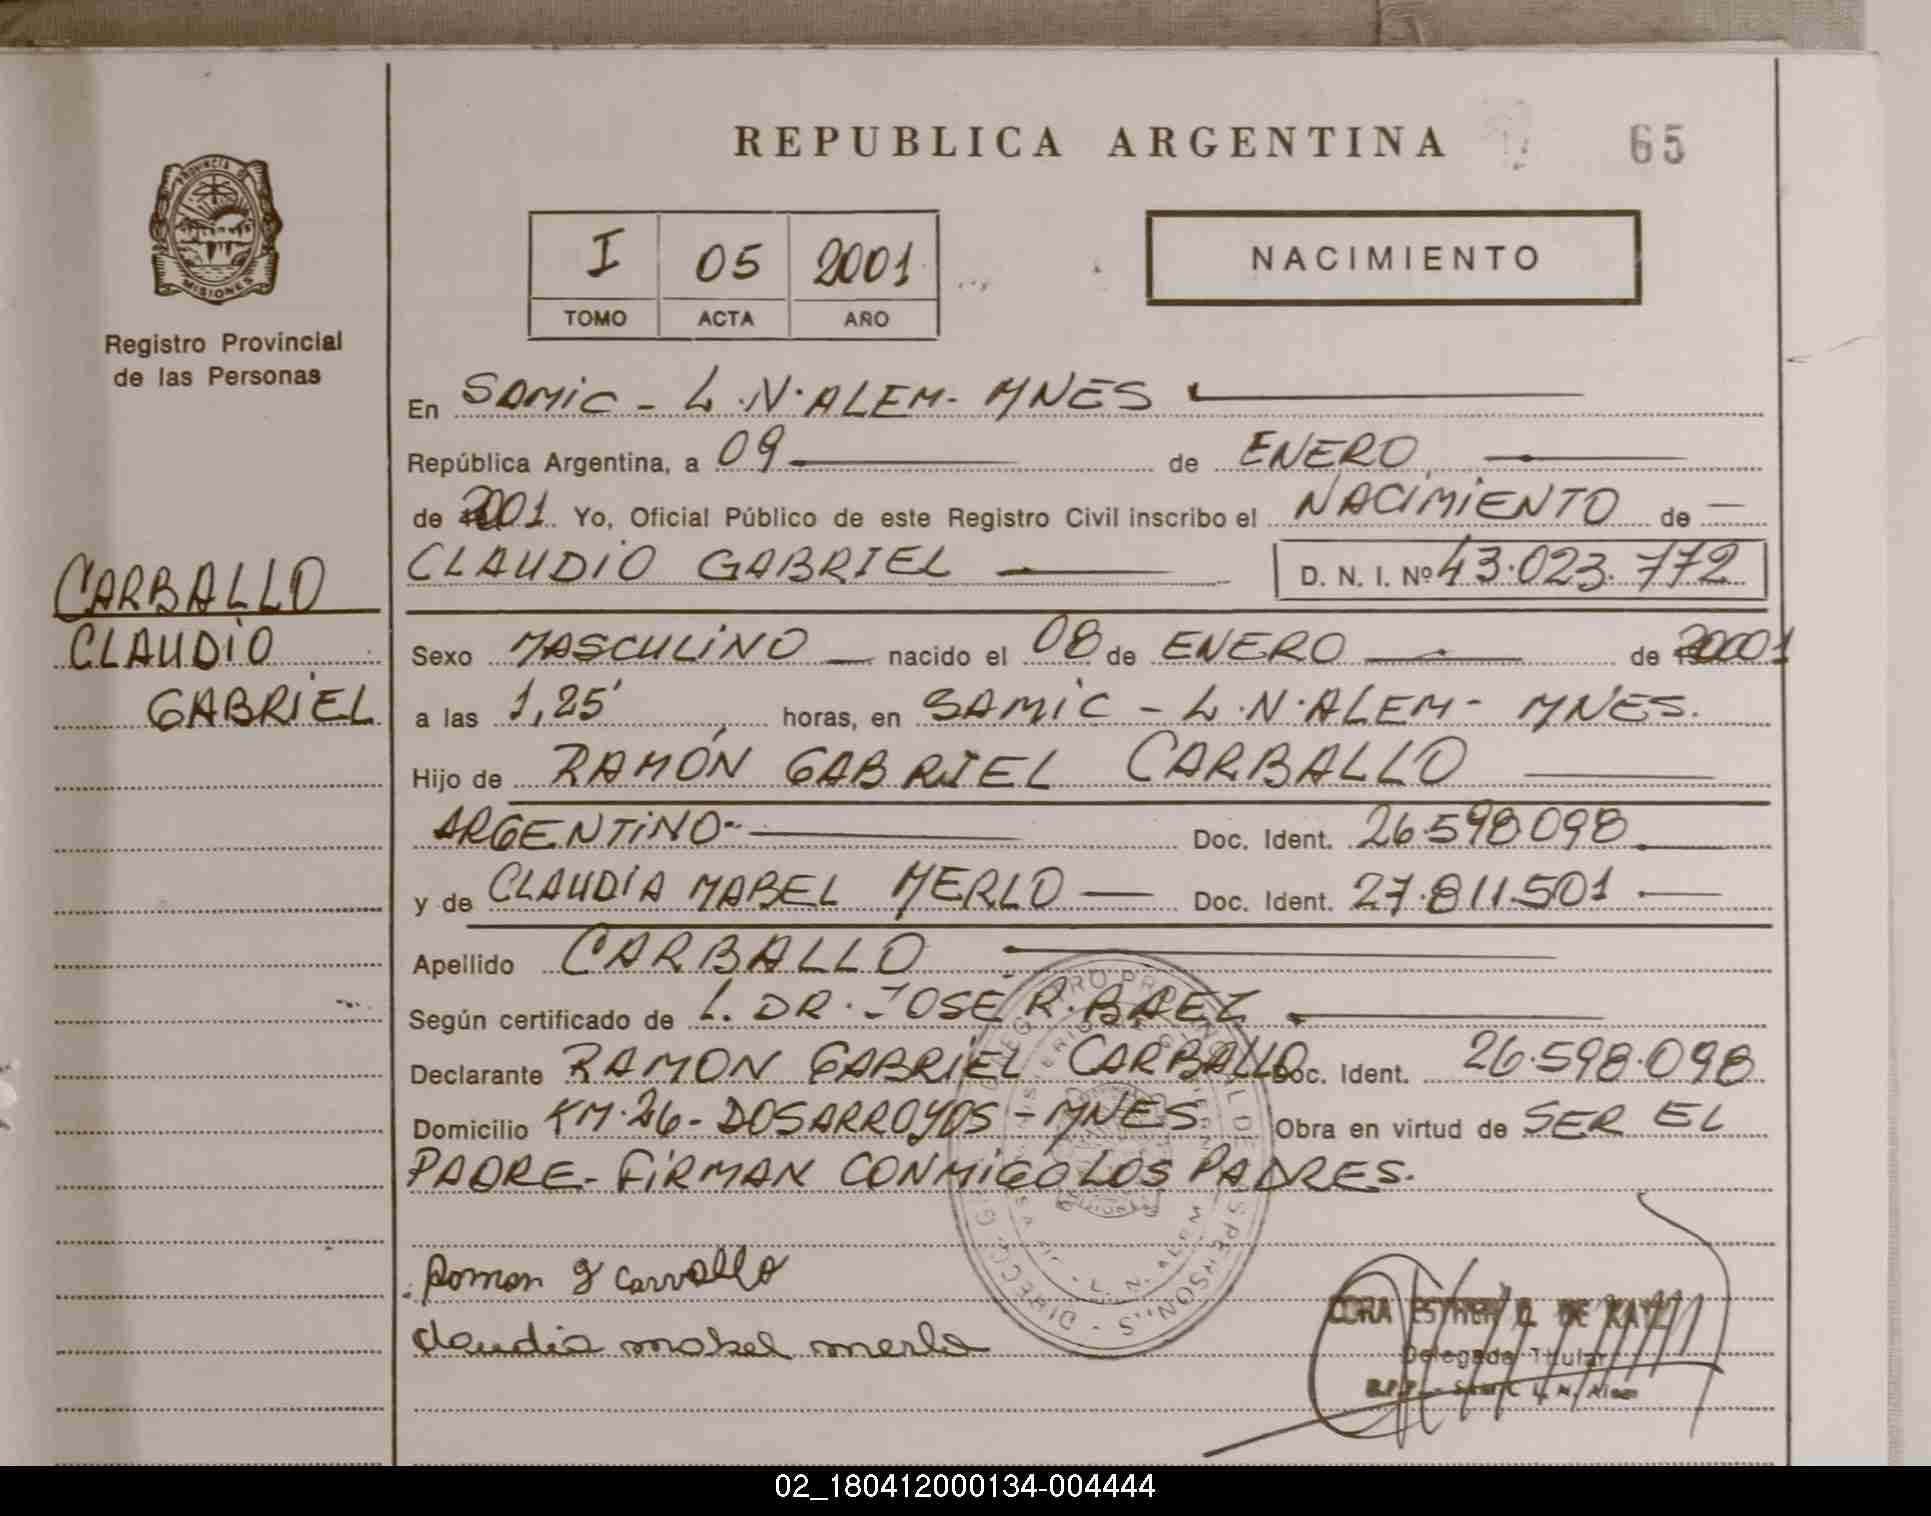 REPUBLICA ARGENTINA
65
PROVINCIA DE
MISIONES
Registro Provincial
de las Personas
I 05 2001
TOMO ACTA AÑO
NACIMIENTO
En SAMIC - L.N.ALEM - MNES
República Argentina, a 09 de ENERO
de 2001 Yo, Oficial Público de este Registro Civil inscribo el NACIMIENTO de
CLAUDIO GABRIEL D. N. I. Nº 43.023.772
CARBALLO
CLAUDIO
GABRIEL
Sexo MASCULINO nacido el 08 de ENERO de 2001
a las 1,25' horas, en SAMIC - L.N.ALEM - MNES.
Hijo de RAMÓN GABRIEL CARBALLO
ARGENTINO Doc. Ident. 26.598098
y de CLAUDIA MABEL MERLO Doc. Ident. 27.811.501
Apellido CARBALLO
Según certificado de L. DR. JOSE R. BAEZ
Declarante RAMON GABRIEL CARBALLO Doc. Ident. 26.598.098
Domicilio KM.26 - DOSARROYOS - MNES Obra en virtud de SER EL
PADRE - FIRMAN CONMIGO LOS PADRES.
Roman g carvallo
claudia mabel merlo
ESTHER DE
Delegada Titular
02_180412000134-004444